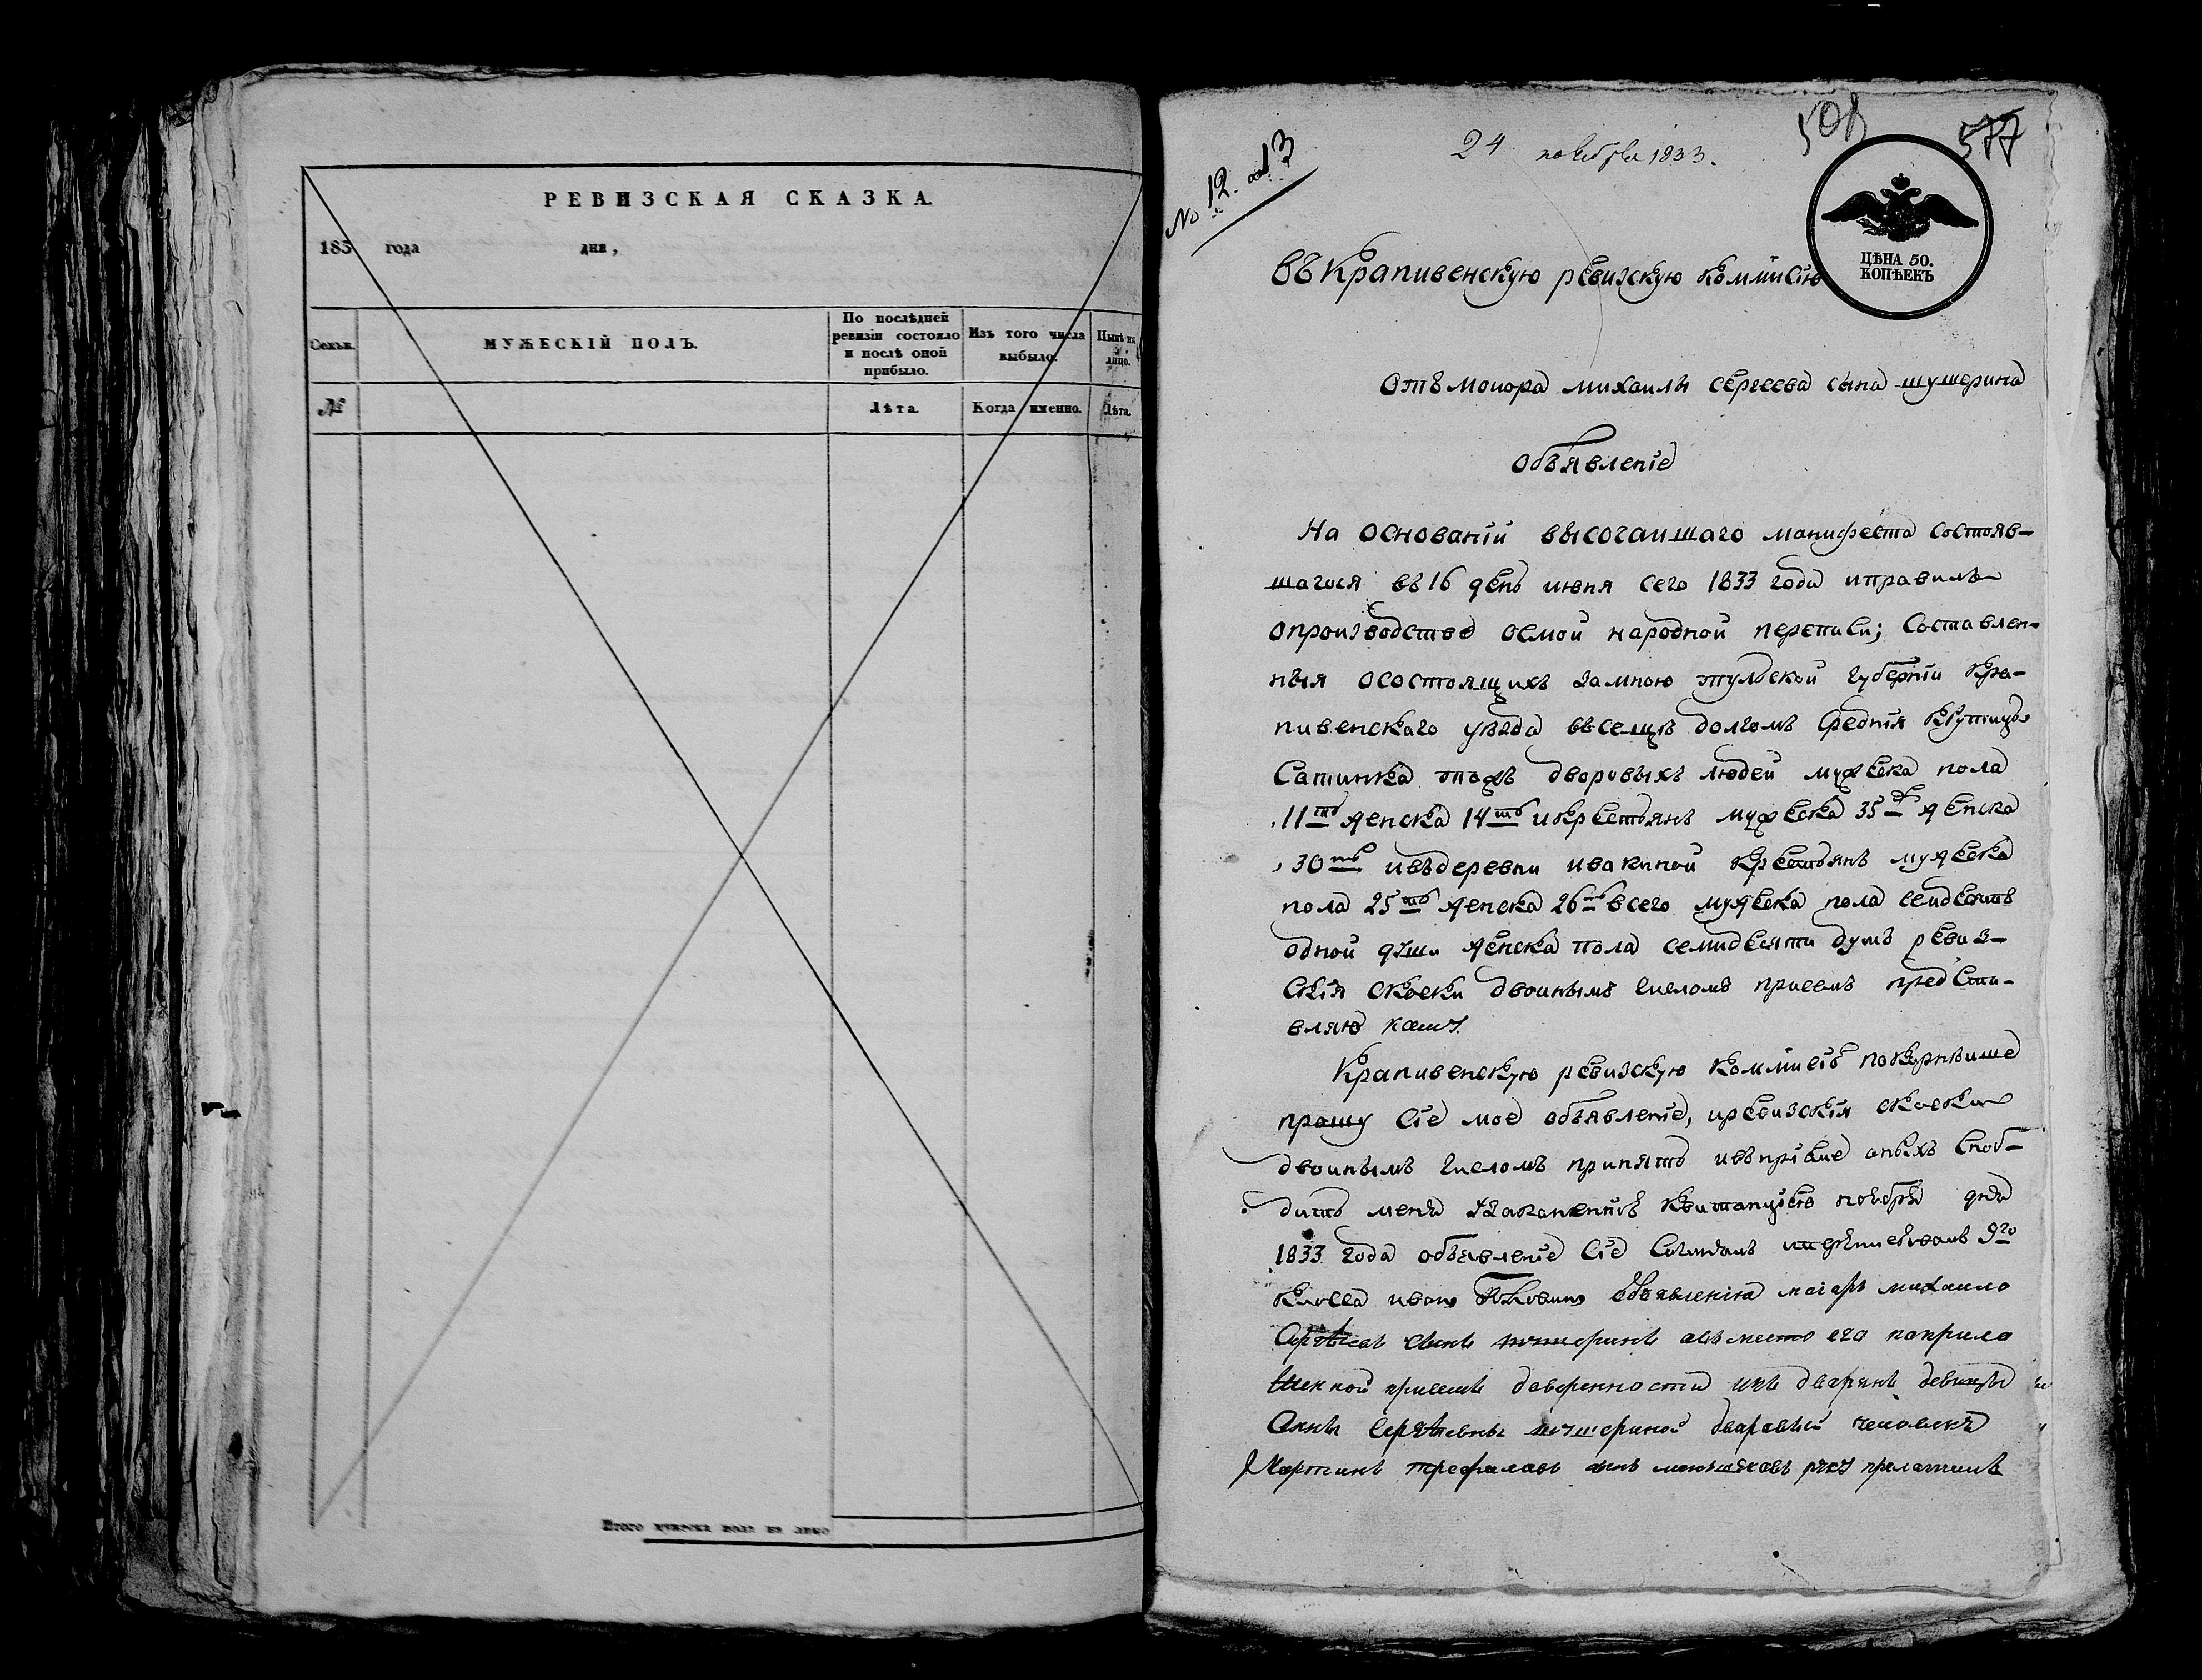 РЕВИЗСКАЯ СКАЗКА.
183 года дня,
Семьи. МУЖЕСКІЙ ПОЛЪ. По послѣдней ревизіи состояло и послѣ оной прибыло. Изъ того числа выбыло. Нынѣ на лицо.
№ Лѣта. Когда именно. Лѣта.
Итого мужеска пола на лицо
24 ноября 1833.
508 577
№ 12.
ЦѢНА 50.
КОПѢЕКЪ
Въ Крапивенскую ревизскую коммисію
Отъ моиора михаилы сергеева сына шушерина
Объявленіе
На основаніи высочаишаго манифеста состояв-
шагося въ 16 день июня сего 1833 года и правилъ
о производстве осмой народной переписи; Составлен-
ныя о состоящихъ за мною тульской губерніи Кра-
пивенскаго уѣзда въ сельцѣ долгомъ средния
Сатинка тожъ дворовыхъ людей мужеска пола
11ть женска 14ть и крестьянъ мужеска 35ть женска
30ть и въ деревни ивакиной крестьянъ мужеска
пола 25ть женска 26ть всего мужеска пола семидесятъ
одной души женска пола семидесяти душъ ревиз-
скія скаски двоинымъ числомъ присемъ предста-
вляю
Крапивенскую ревизскую коммисію покорнѣише
прошу сіе мое объявленіе, и ревизскія скаски
двоинымъ числомъ принять и въ пріеме оныхъ снаб-
дить меня квитанціею ноября дня
1833 года объявленіе сіе 9го
класса иванъ объявленію маіоръ михаило
Сергѣевъ сынъ шушеринъ а въместо его поприло
женной присемъ доверенности изъ дварянъ девицы
Анны Сергѣевны шушериной дваравый человекъ
Мартинъ трефилавъ сынъ руку приложилъ